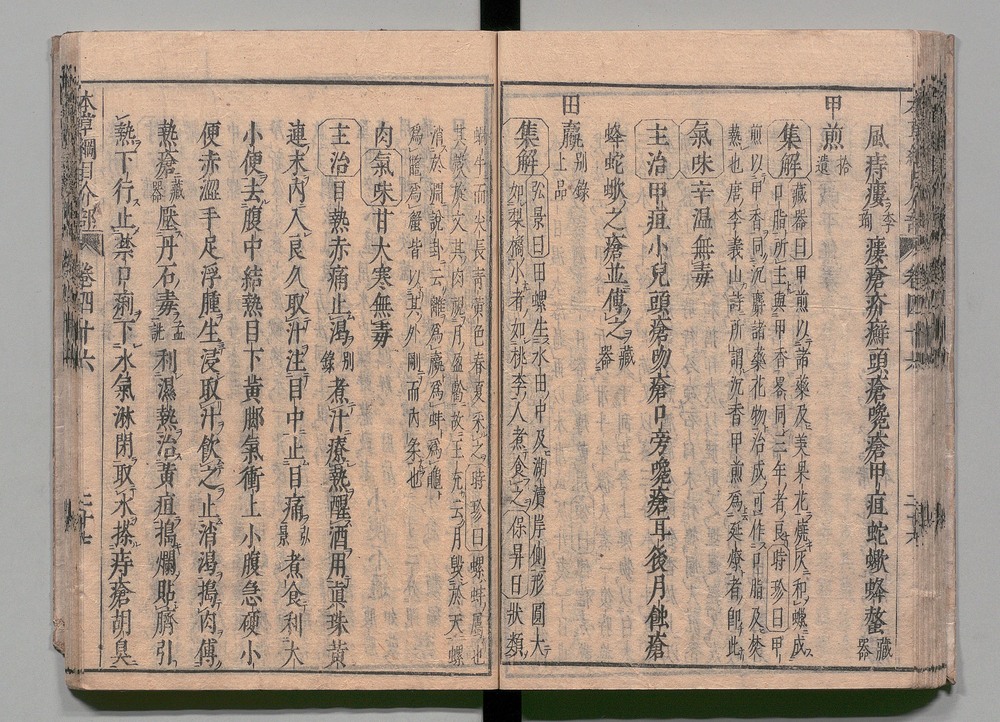 風痔瘻李珣瘻瘡疥癬頭瘡㿜瘡甲疽蛇蠍蜂螫藏器
甲煎拾遺
集解藏器曰甲煎以諸藥及美果花燒灰和蠟成
口脂所主與甲香畧同三二年者良時珍曰甲
煎以甲香同沉麝諸藥花物治成可作口脂及焚
爇也唐李義山詩所謂沉香甲煎爲廷燎者即此
氣味辛温無毒
主治甲疽小兒頭瘡吻瘡口旁㿜瘡耳後月蝕瘡
蜂蛇蠍之瘡並傅之藏器
田蠃別錄上品
集解弘景曰田螺生水田中及湖瀆岸側形圓大
如梨橘小者如桃李人煮食之保昇曰狀類
蝸牛而尖長青黃色春夏采之時珍曰螺蚌屬也
其殼旋文其肉視月盈虧故王充云月毀於天螺
消於淵說卦云離爲蠃爲蚌爲龜
爲鱉爲蟹皆以其外剛而內柔也
肉氣味甘大寒無毒
主治目熱赤痛止渴別錄煮汁療熱醒酒用眞珠黃
連末內入良久取汁注目中止目痛弘景煮食利大
小便去腹中結熱目下黃脚氣衝上小腹急硬小
便赤澀手足浮腫生浸取汁飲之止消渴搗肉傅
熱瘡藏器壓丹石毒孟詵利濕熱治黃疸搗爛貼臍引
熱下行止禁口痢下水氣淋閉取水搽痔瘡胡臭
本草綱目介部 卷四十六 二十七